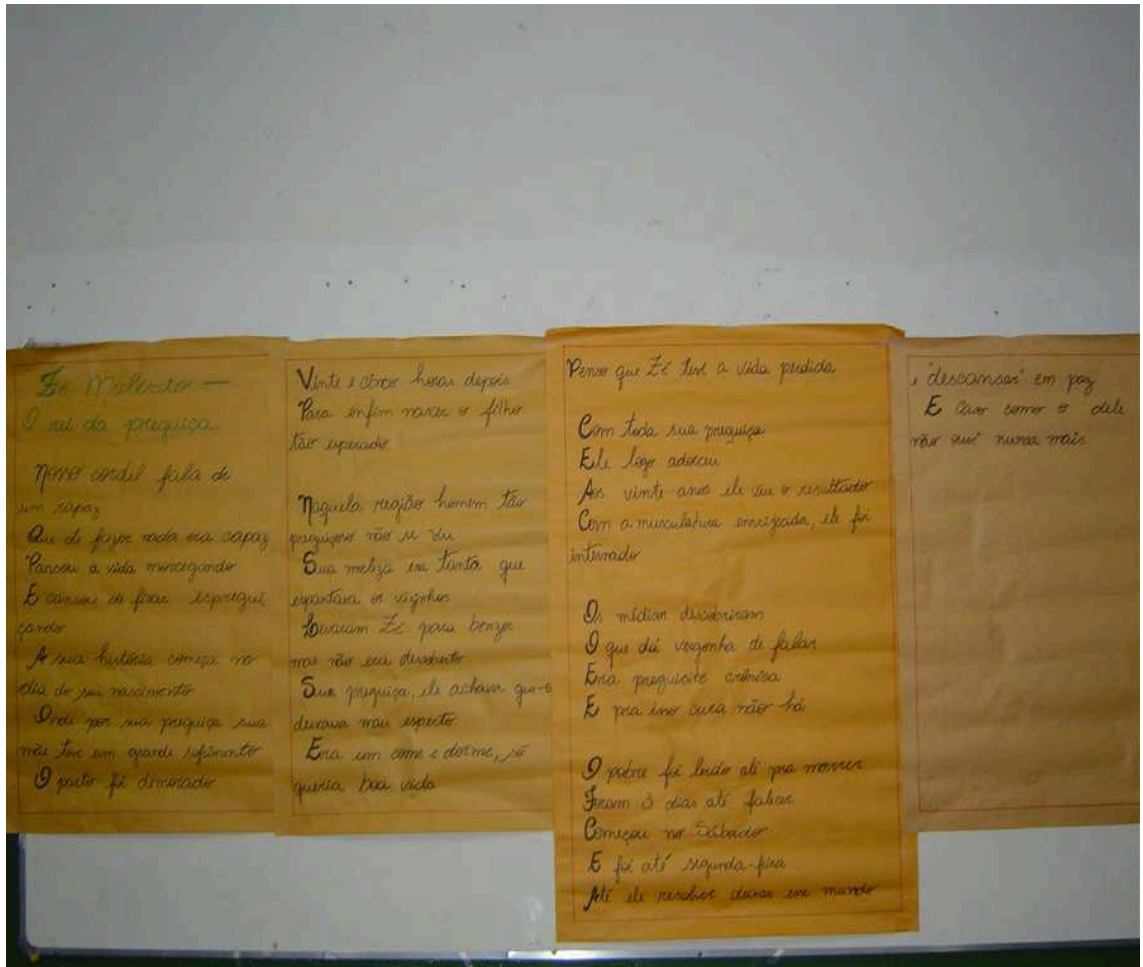 Zé Malvado —
O rei da preguiça
Nosso cordel fala de
um rapaz
Que de fazer nada era capaz
Passou a vida morcegando
E cansou de ficar espregui
çando
A sua história começa no
dia do seu nascimento
Onde por sua preguiça sua
mãe teve um grande sofrimento
O parto foi demorado
Vinte e cinco horas depois
Para enfim nascer o filho
tão esperado.
Naquela região homem tão
preguiçoso não se viu
Sua moleza era tanta que
espantava os vizinhos
Levaram Zé para benzer
mas não era
Sua preguiça, ele achava que o
deixava mais esperto
Era um come e dorme, só
queria boa vida
Penso que Zé teve a vida perdida
Com toda sua preguiça
Ele logo adoeceu
Aos vinte anos ele viu o resultado
Com a musculatura enrijecida, ele foi
internado
Os médicos descobriram
O que dá vergonha de falar
Era preguicite crônica
E pra isso cura não há
O pobre foi lerdo até pra morrer
Foram 3 dias até falecer
Começou no Sábado
E foi até segunda-feira
Até ele resolver deixar esse mundo
e "descansar" em paz
E Caso como o dele
não nunca mais